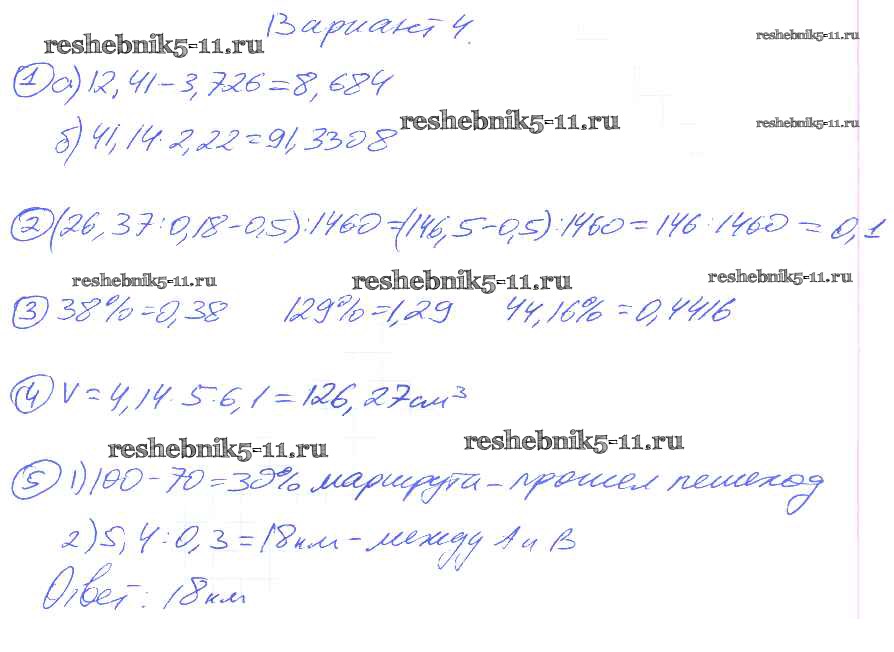 Вариант 4.
reshebnik5-11.ru
reshebnik5-11.ru
1 а) 12,41-3,726=8,684
reshebnik5-11.ru
reshebnik5-11.ru
б) 41,14·2,22=91,3308
2 (26,37:0,18-0,5):1460=(146,5-0,5):1460=146:1460=0,1
reshebnik5-11.ru
reshebnik5-11.ru
reshebnik5-11.ru
3 38%=0,38 129%=1,29 44,16%=0,4416
4 V=4,14·5·6,1=126,27см³
reshebnik5-11.ru
reshebnik5-11.ru
5 1) 100-70=30% маршрута - прошел пешеход
2) 5,4:0,3=18км - между А и В
Ответ: 18км